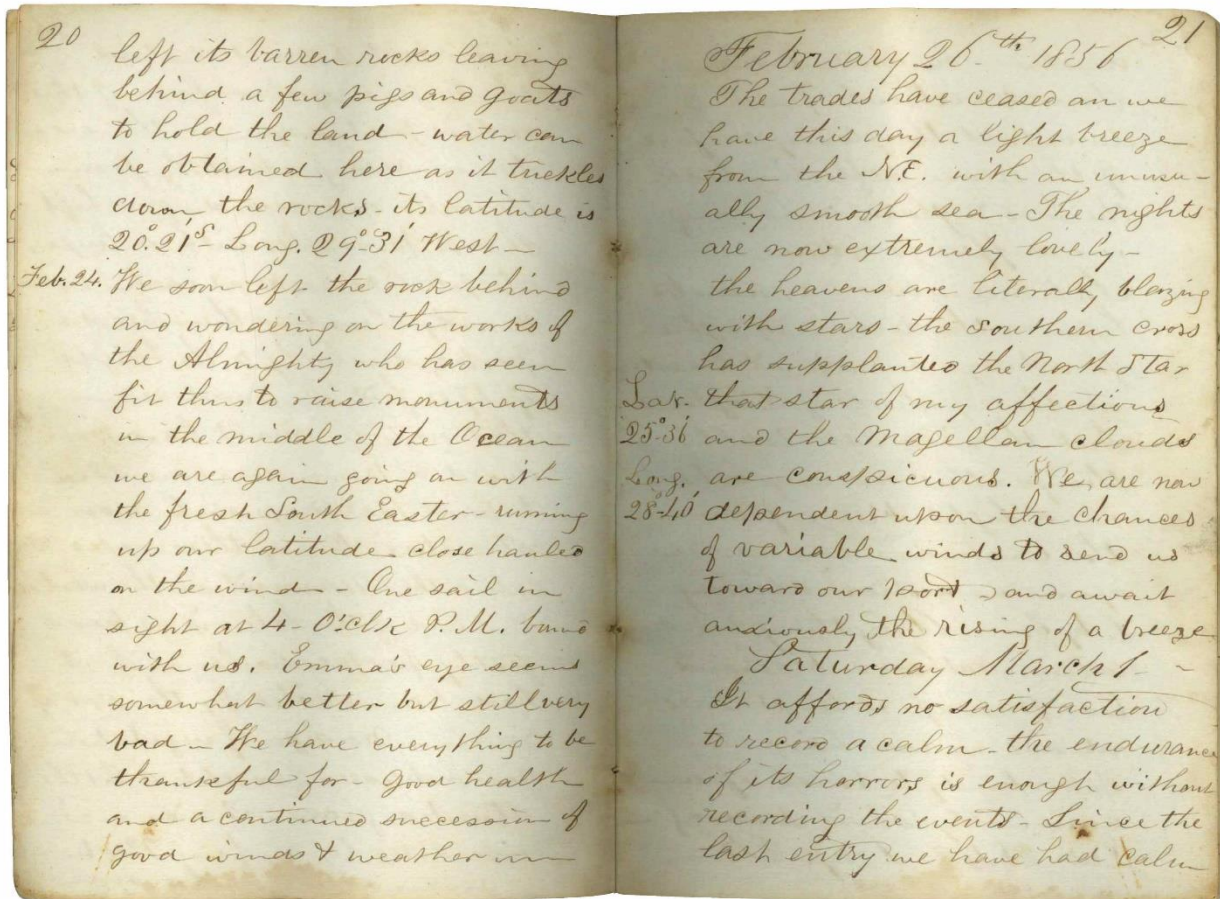 20
left its barren rocks leaving
behind a few pigs and goats
to hold the land - water can
be obtained here as it trickles
down the rocks - its latitude is
20°.21' S - Long. 29°-31' West -
Feb. 24. We soon left the rock behind
and wondering on the works of
the Almighty who has seen
fit thus to raise monuments
in the middle of the Ocean
we are again going on with
the fresh South Easter - running
up our latitude close hauled
on the wind - One sail in
sight at 4 - O'clk P.M. bound
with us. Emma's eye seems
somewhat better but still very
bad - We have everything to be
thankful for - good health
and a continued succession of
good winds & weather
21
February 26th 1856
The trades have ceased an we
have this day a light breeze
from the N.E. with an unusu-
ally smooth sea - The nights
are now extremely lovely -
the heavens are literally blazing
with stars - the Southern cross
has supplanted the North Star
Lat. that star of my affections
25°-36' and the Magellan clouds
Long. are conspicuous. We are now
28°-40' dependent upon the chances
of variable winds to send us
toward our port, and await
anxiously the rising of a breeze
Saturday March 1 -
It affords no satisfaction
to record a calm - the endurance
of its horrors is enough without
recording the events - Since the
last entry we have had calm